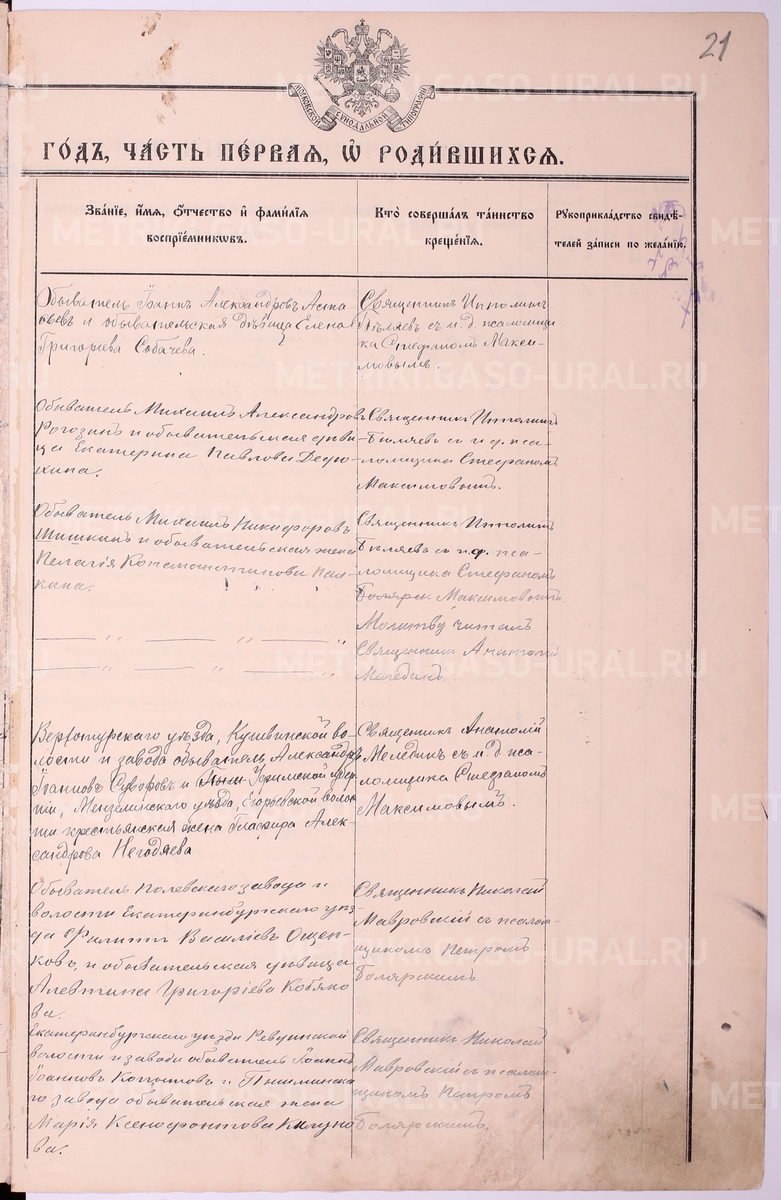 21
МОСКОВСКОЙ СѴНОДАЛЬНОЙ ТИПОГРАФІИ
ГОДЪ, ЧАСТЬ ПЕРВАЯ, Ѡ РОДИВШИХСЯ.
Званіе, имя, отчество и фамилія
воспріемниковъ.
Кто совершалъ таинство
крещенія.
Рукоприкладство свидѣ-
телей записи по желанію.
Обыватель Іоаннъ Александровъ
и обывательская дѣвица Елена
Григоріева Собачева.
Священникъ Ипполитъ
Бѣляевъ съ и. д. псаломщи-
ка Стефаномъ Макси-
мовымъ.
Обыватель Михаилъ Александровъ
Рогозинъ и обывательская дѣви-
ца Екатерина Павлова Дедю-
хина.
Священникъ Ипполитъ
Бѣляевъ съ и. д. пса-
ломщика Стефаномъ
Максимовымъ.
Обыватель Михаилъ Никифоровъ
Шишкинъ и обывательская жена
Пелагія Константинова Пал-
кина.
Священникъ Ипполитъ
Бѣляевъ съ и. д. пса-
ломщика Стефаномъ
Максимовымъ.
Молитву читалъ
Священникъ Анатолій
Меледин.
Верхотурскаго уѣзда, Кушвинской во-
лости и завода обыватель Александръ
Іоанновъ Суворовъ и Уфимской губер-
ніи, Мензелинскаго уѣзда, Егорьевской волос-
ти крестьянская жена Глафира Алек-
сандрова Негодяева
Священникъ Анатолій
Меледин съ и. д. пса-
ломщика Стефаномъ
Максимовымъ.
Обыватель Полевскаго завода и
волости Екатеринбургскаго уѣз-
да Филиппъ Василіевъ Ощеп-
ковъ, и обывательская дѣвица
Алевтина Григоріева Кобяко-
ва.
Священникъ Николай
Мавровскій съ псалом-
щикомъ Петромъ
Боярскимъ.
Екатеринбургскаго уѣзда Ревдинской
волости и завода обыватель Іоаннъ
Іоанновъ Копытовъ и Пышминска-
го завода обывательская жена
Марія Ксенофонтова
ва.
Священникъ Николай
Мавровскій съ псалом-
щикомъ Петромъ
Боярскимъ.
METRIKI.GASO-URAL.RU